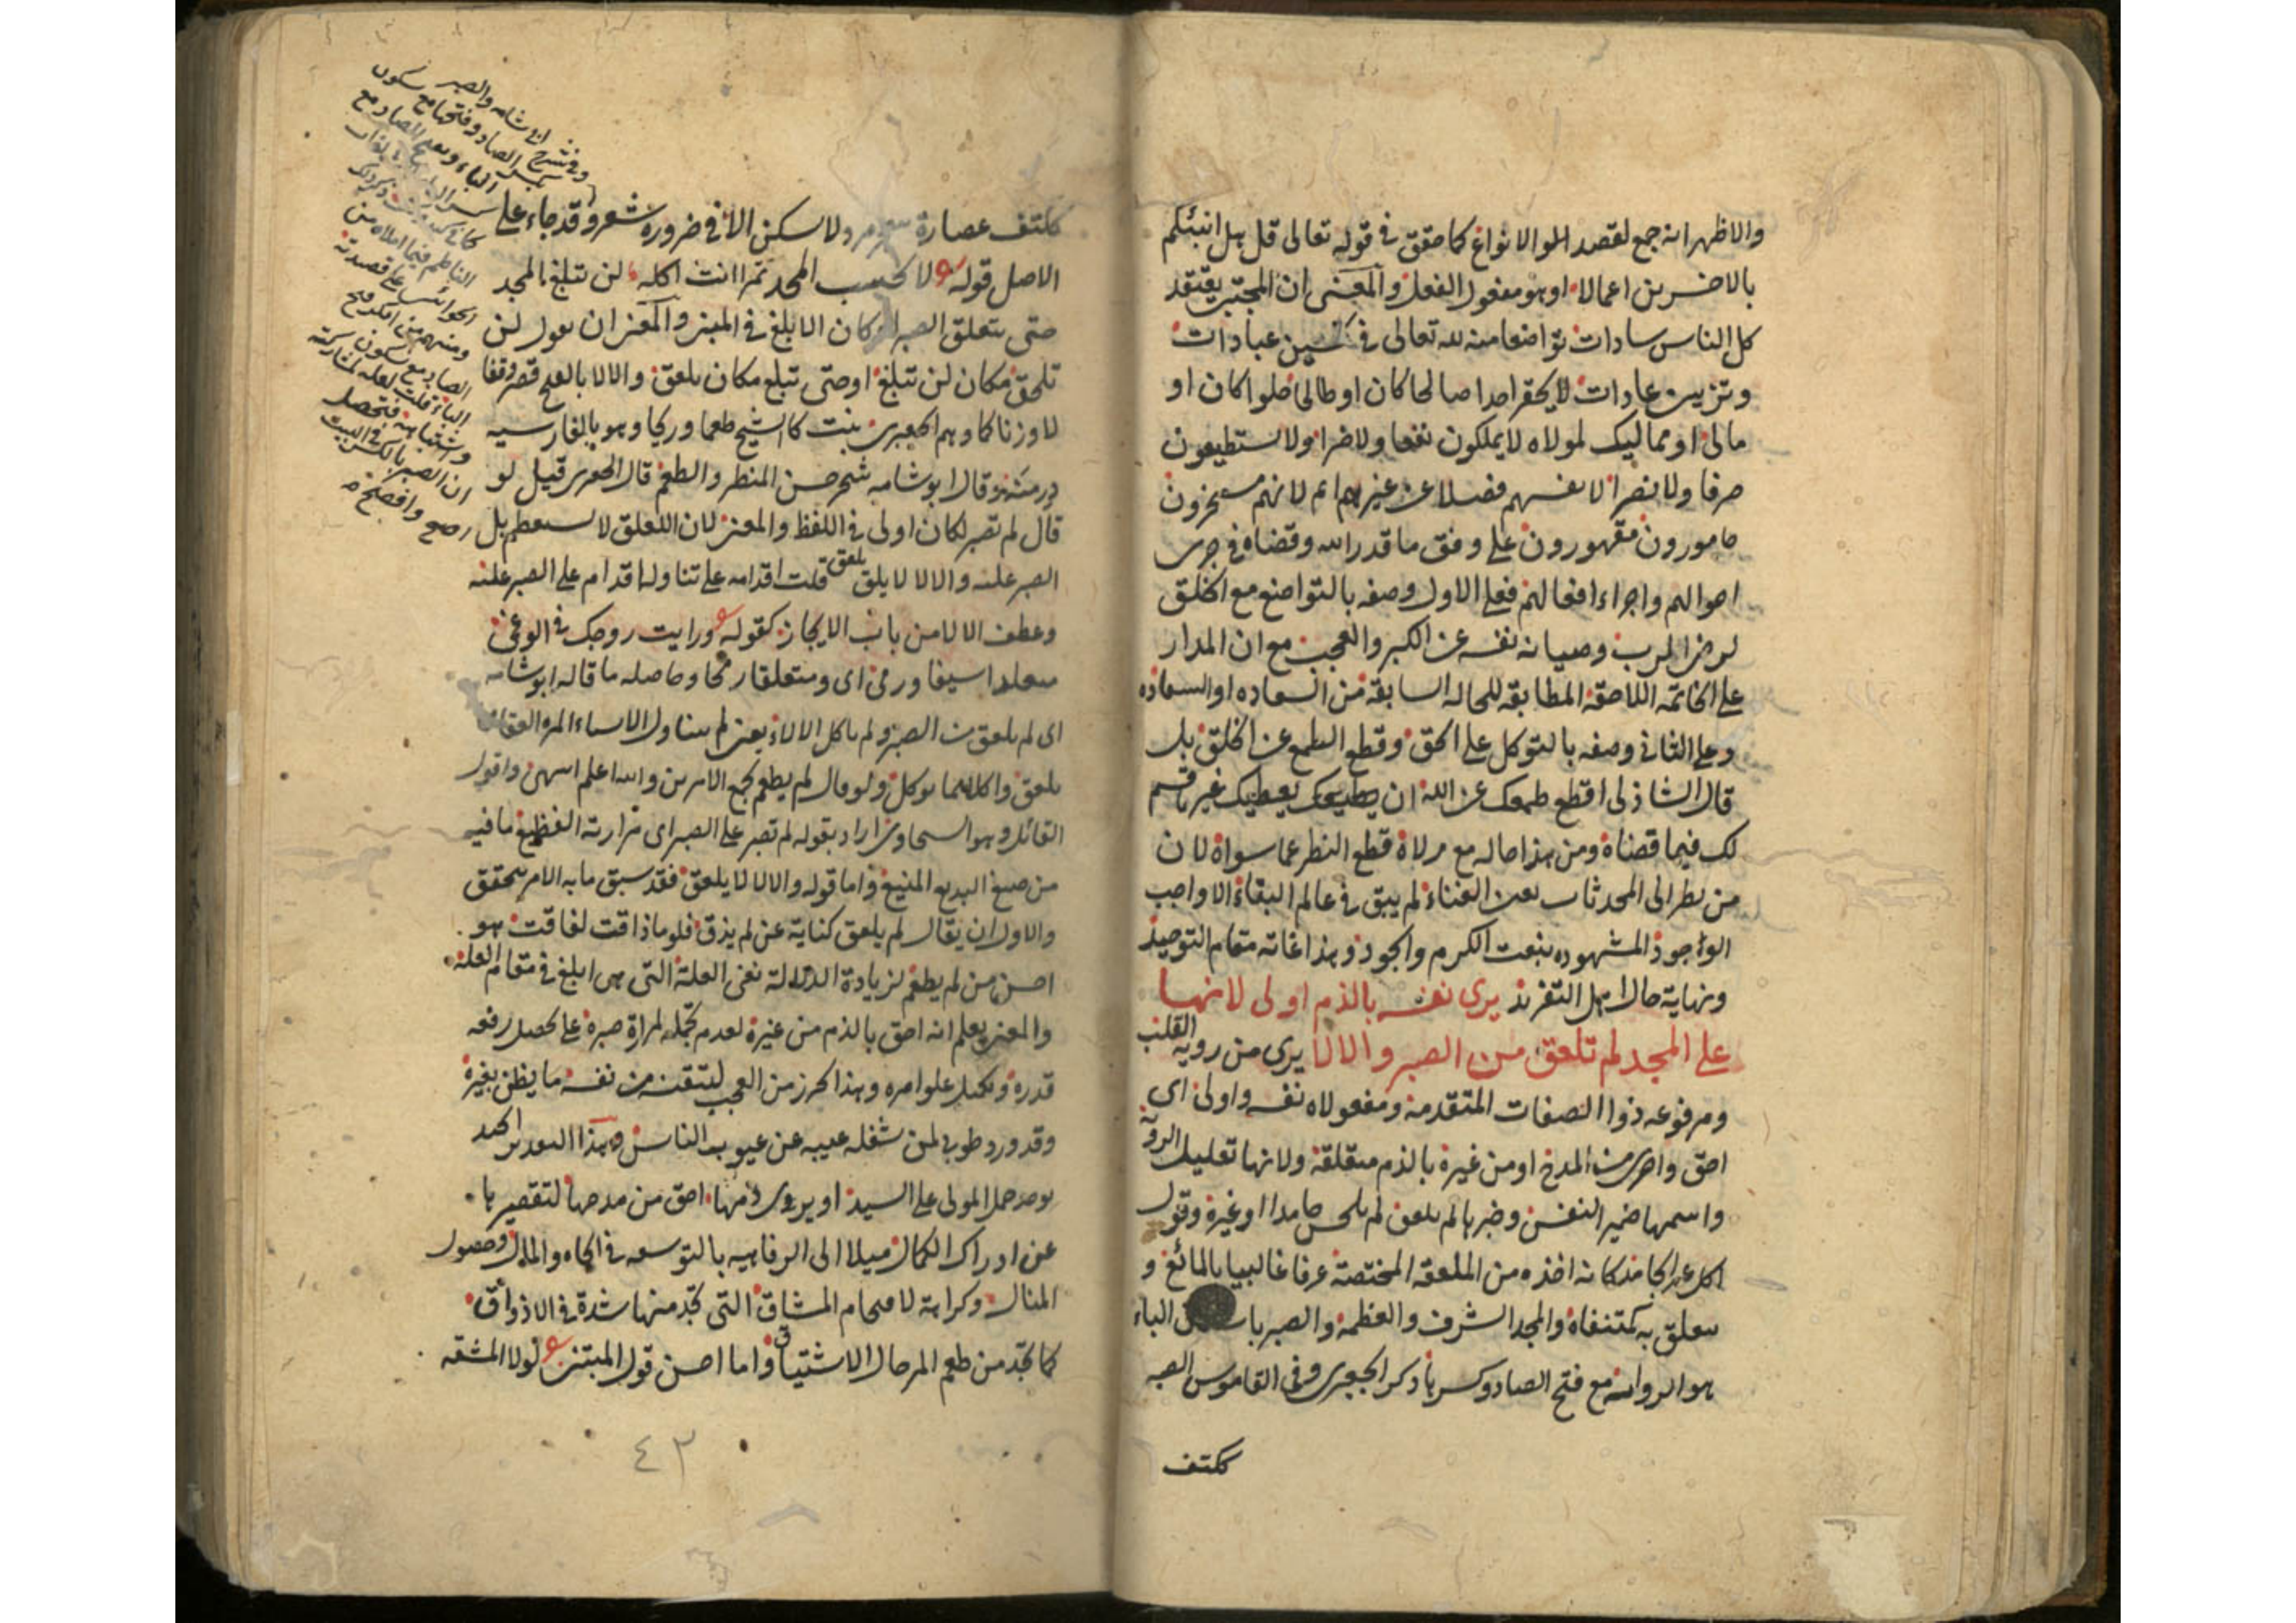 والاظهر انه جمع لقصد الموالانواع كما حقق في قوله تعالى قل هل انبئكم
بالاخسرين اعمالا او هو مفعول الفعل والمعنى ان المجتبى يعتقد
كل الناس سادات تواضعا منه لله تعالى في تحسين عبادات
وتزيين عادات لا يحقر احدا صالحا كان او طالحا حلوا كان او
مالحا او مماليك لمولاه لا يملكون نفعا ولا ضرا ولا يستطيعون
صرفا ولا نصرا لانفسهم فضلا عن غيرهم لانهم مسخرون
مامورون مقهورون على وفق ما قدر الله وقضاه في جرى
احوالهم واجراء افعالهم فعلى الاول وصفه بالتواضع مع الخلق
لرضا الرب وصيانة نفسه عن الكبر والعجب مع ان المدار
على الخاتمة اللاحقة المطابقة للحالة السابقة من السعادة او
وعلى الثاني وصفه بالتوكل على الحق وقطع الطمع عن الخلق بل
قال الشاذلي اقطع طمعك عن الله ان يعطيك غير ما قسم
لك فيما قضاه ومن هذا حاله مع مولاه قطع النظر عما سواه لان
من نظر الى المحدثات بعين الفناء لم يبق في عالم البقاء الا واجب
الوجود المشهود بنعت الكرم والجود وهذا غاية مقام التوحيد
ونهاية حال اهل التفريد يرى نفسه بالذم اولى لانها
على المجد لم تلعق من الصبر والالا يرى من روية القلب
ومرفوعه ذو الصفات المتقدمة ومفعولاه نفسه واولى اى
احق واحرى من المدح او من غيره بالذم متعلقه ولانها تعليل الروية
واسمها ضمير النفس وخبرها لم تلعق لم تلحس جامدا او غيره وقول
الجعبرى اكل الجامد كانه اخذه من الملعقة المختصة عرفا غالبيا بالمائع و
يتعلق به كمتنفاه والمجد الشرف والعظمة والصبر الباء
هو الرواية مع فتح الصاد وكسرها ذكر الجعبرى وفي القاموس الصبر
ككتف
ككتف عصارة مر ولا يسكن الا في ضرورة شعر وقد جاء على
الاصل قوله لا تحسب المجد تمرا انت اكله لن تبلغ المجد
حتى تلعق الصبرا وكان الابلغ في المبنى والمعنى ان يقول لن
تلحق مكان لن تبلغ او حتى تبلع مكان تلعق والالا بالفتح قصر وقفا
لا وزنا كما وهم الجعبرى نبت كالشيح طعما وريحا وهو بالفارسيه
درمنه وقال ابو شامه شجر حسن المنظر والطعم قال الجعبرى قيل لو
قال لم تصبر لكان اولى في اللفظ والمعنى لان اللعاق لا يستعظم بل
الصبر عليه والالا لا يلعق قلت اقدامه على تناوله اقدام على الصبر عليه
وعطف الالا من باب الايجاز كقوله ورايت زوجك في الوغى
متقلدا سيفا ورمحا اى ومتعلقا رمحا وحاصله ما قاله ابو شامه
اى لم تلعق من الصبر ولم تاكل الالاء يعنى لم يتناول الاشياء المرة
تلعق واكلا مما يوكل ولو قال لم يطعم لجمع الامرين والله اعلم انتهى واقول
القائل وهو السخاوى اراد بقوله لم تصبر على الصبر اى مرارته الفظيع ما فيه
من صيغ البديع المنيع واما قوله والالا لا يلعق فقد سبق ما به الامر يتحقق
والاولى ان يقال لم يلعق كناية عن لم يذق فلو ما ذاقت لفاقت هو
احسن من لم يطعم لزيادة الدلالة نفى العلة التى هى ابلغ في مقام العلة
والمعنى يعلم انه احق بالذم من غيره لعدم تحمله لمرارة صبره على تحصيل رفعة
قدره وتكميل علو امره وهذا تحرز من العجب لتيقنه من نفسه ما يظن بغيره
وقد ورد طوبى لمن شغله عيبه عن عيوب الناس وبهذا التقدير
يوجد حمل المولى على السيد او يرى ذمها احق من مدحها لتقصيرها
عن ادراك الكمال ميلا الى الرفاهيه بالتوسعة في الجاه والمال وحصول
المنال وكراهة لاقتحام المشاق التى تجد منها شدة في الاذواق
كما تجد من طعم المر حال الاشتياق واما احسن قول المتنبى لولا المشقه
٤٣
وفي شرح ابي شامه والصبر
بكسر الصاد وفتحها مع سكون
الباء وبفتح الصاد مع
الناظم فيما املاه من
الحواشى على قصيدته
ومنهم من انكر فتح
الصاد مع سكون
الباء قلت لعله لمشاركته
واشتباهه فتحصل
ان الصبر بالكسر في البيت
ارجح وافصح